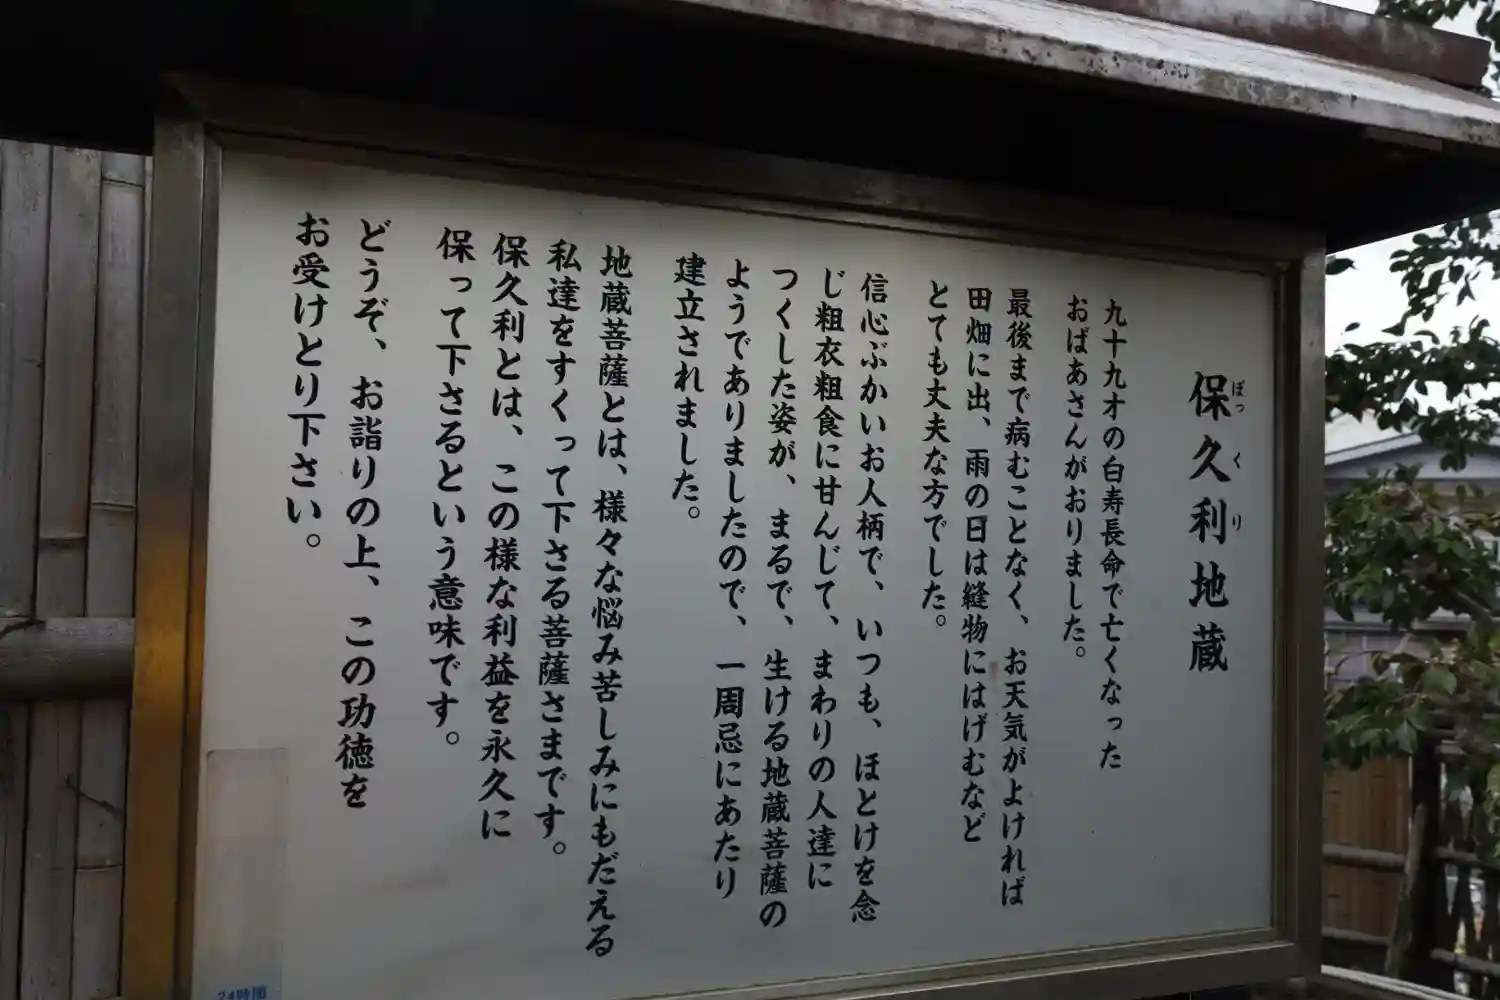 保久利地蔵
ぼっくり
九十九才の白寿長命で亡くなった
おばあさんがおりました。
最後まで病むことなく、お天気がよければ
田畑に出、雨の日は縫物にはげむなど
とても丈夫な方でした。
信心ぶかいお人柄で、いつも、ほとけを念
じ粗衣粗食に甘んじて、まわりの人達に
つくした姿が、まるで、生ける地蔵菩薩の
ようでありましたので、一周忌にあたり
建立されました。
地蔵菩薩とは、様々な悩み苦しみにもだえる
私達をすくって下さる菩薩さまです。
保久利とは、この様な利益を永久に
保って下さるという意味です。
どうぞ、お詣りの上、この功徳を
お受けとり下さい。
24時間